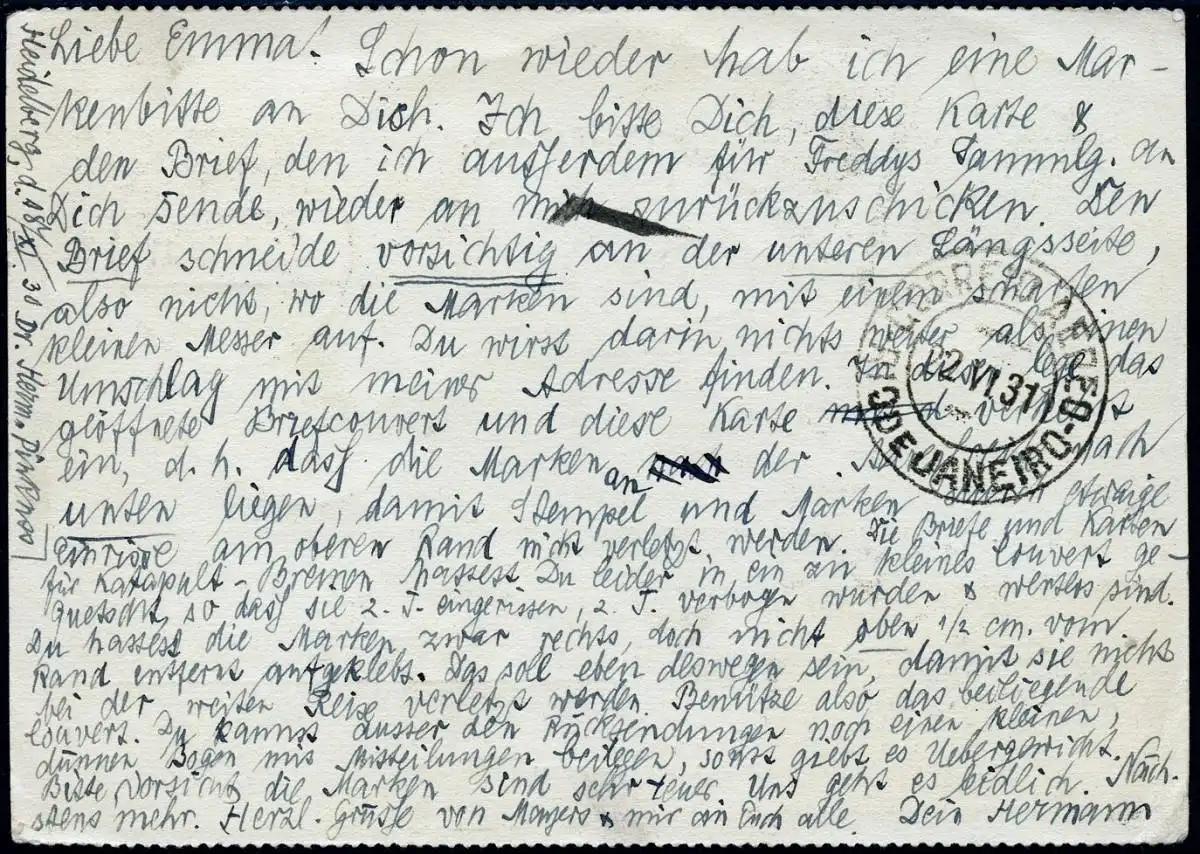 Liebe Emma! Schon wieder hab ich eine Mar-
kenbitte an Dich. Ich bitte Dich, diese Karte &
den Brief, den ich ausserdem für Freddys Sammlg. an
Dich sende, wieder an mich zurückzuschicken. Den
Brief schneide vorsichtig an der unteren Längsseite,
also nicht, wo die Marken sind, mit einem scharfen
kleinen Messer auf. Du wirst darin nichts weiter als einen
Umschlag mit meiner Adresse finden. In diesen lege das
geöffnete Briefcouvert und diese Karte verkehrt
ein, d. h. dass die Marken an der nach
unten liegen, damit Stempel und Marken durch etwaige
Einrisse am oberen Rand nicht verletzt werden. Die Briefe und Karten
für Katapult-Bremen hattest Du leider in ein zu kleines Couvert ge-
quetscht, so dass sie z. T. eingerissen, z. T. verbogen wurden & wertlos sind.
Du hattest die Marken zwar rechts, doch nicht oben 1/2 cm. vom
Rand entfernt aufgeklebt. Das soll eben deswegen sein, damit sie nicht
bei der weiten Reise verletzt werden. Benütze also das beiliegende
Couvert. Du kannst ausser den Rücksendungen noch einen kleinen,
dünnen Bogen mit Mitteilungen beilegen, sonst giebt es Uebergewicht.
Bitte, Vorsicht, die Marken sind sehr teuer. Uns geht es leidlich. Näch-
stens mehr. Herzl. Grüsse von Mayers & mir an Euch alle. Dein Hermann
Heidelberg, d. 18/XI. 31 Dr. Herm. Pinkuss
22 VI 31
RIO DE JANEIRO